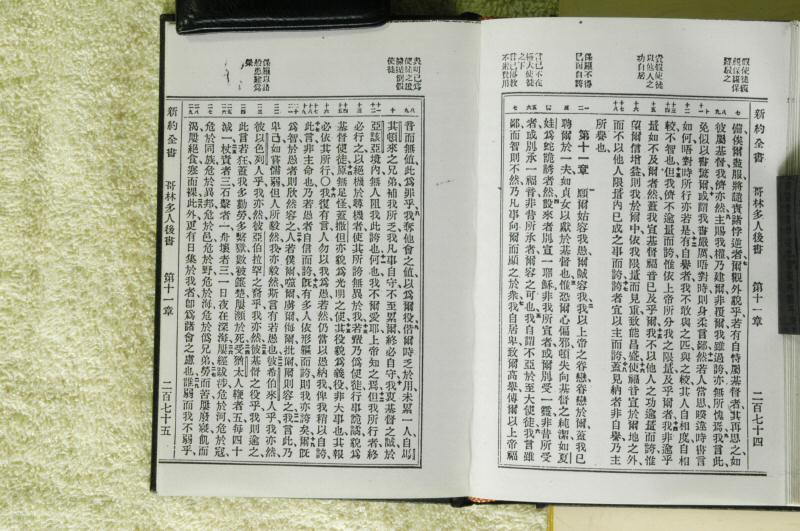 假使徒
輕保羅保
羅駁之
責假使徒
以他人之
功自居
保羅不得
已而自誇
言己不在
極大使徒
之下
新約全書　哥林多人後書　第十一章　二百七十四
備俟爾盡服將譴責諸悖逆者爾觀外貌乎若有自恃屬基督者其再思之如
彼屬基督我儕亦然主賜我權乃建爾非覆爾我雖過誇亦無所愧焉我言此
免似以書驚爾或謂我書嚴厲晤對時則身柔言鄙然若人當思暌違時書言
如何晤對時所行亦若是有自譽者我不敢與之匹與之較其人自相度自相
較不智也但我儕不逾量而誇惟依上帝所分我之限量及乎爾者我非逾乎
量如不及爾者然蓋我宣基督福音已及乎爾我不以他人之功逾量而誇惟
望爾信增益則我於爾中依我限量而見重致能昌盛使福音宣於爾地之外
而不以他人限量內已成之事而誇誇者宜以主而誇蓋見納者非自譽乃主
所譽也
第十一章　願爾始容我愚爾誠容我我以上帝之眷戀眷戀於爾蓋我已
聘爾於一夫如貞女以獻於基督也惟恐爾心偏邪頓失向基督之純潔如夏
娃為蛇詭誘者然設來者別宣一耶穌非我所宣者或爾別受一靈非昔所受
者或別承一福音非昔所承者爾容之可也我自謂不亞於至大使徒我言雖
鄙而智則不然乃凡事向爾而顯之於衆我自居卑致爾高舉傳爾以上帝福
音而無值此為罪乎我奪他會之值以為爾役偕爾時乏於用未累一人自馬
其頓來之兄弟補我所乏我凡事自守不至累爾終必自守我憑基督之誠於
亞該亞境內無人阻我此誇也何也我不爾愛耶上帝知之焉但我所行者終
必行之以絕機於尋機者使其所誇無異於我若輩乃偽使徒行事詭譎貌為
基督使徒原無足怪蓋撒但亦貌為光明之使其役貌為義役非大事也其報
必依其所行〇我復有言人勿以我為愚若然仍當以愚納我俾我稍以自誇
此言非主命也乃若愚者自信而誇既有多人依形軀而誇則我亦誇矣爾既
為智於愚者則欣然容之人若僕爾噬爾虜爾侮爾批爾頰則容之我言此乃
卑己如嘗懦弱但人所毅然我亦毅然斯言有若愚也彼希伯來人乎我亦然
彼以色列人乎我亦然彼亞伯拉罕之裔乎我亦然彼基督之役乎我則逾之
此言若狂蓋我多勤勞多縶獄數被箠楚屢瀕於死受猶太人鞭者五每四十
減一杖責者三石擊者一舟壞者三一日夜在深海屢經跋涉危於河危於寇
危於同族危於異邦危於邑危於野危於海危於偽兄弟勞而苦屢廢寢飢而
渴屢絕食寒而裸此外更有日集於我者即為諸會之慮也誰弱而我不弱乎
新約全書　哥林多人後書　第十一章　二百七十五